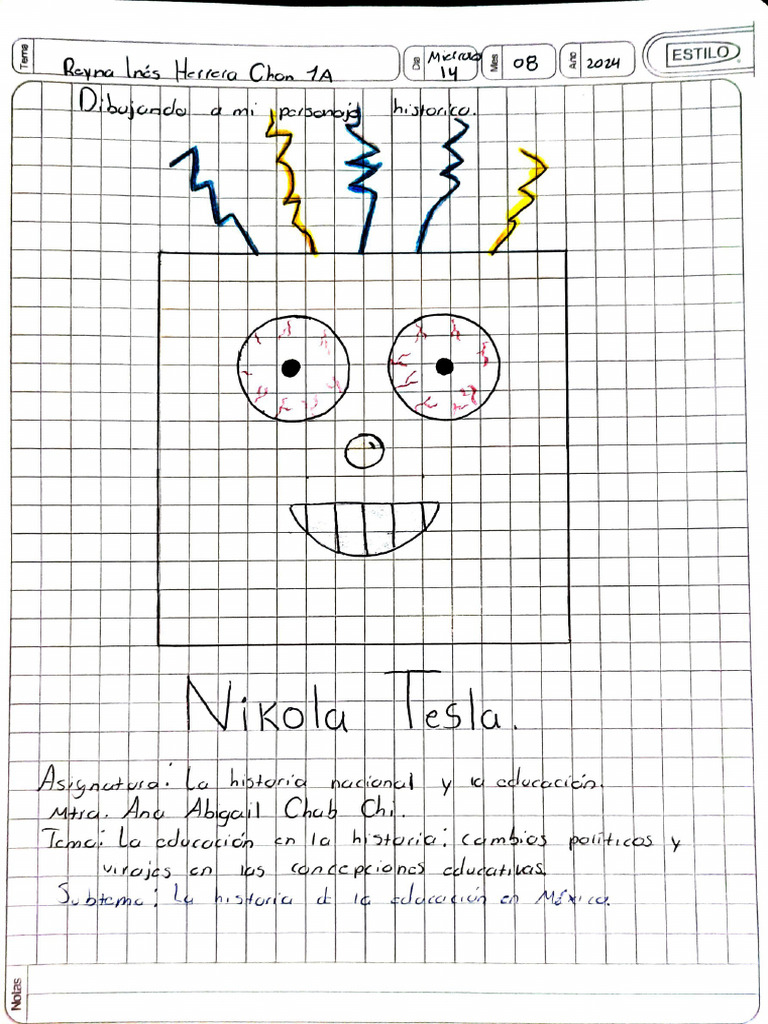 Tema
Reyna Inés Herrera Chan 1A
Dia
Miercoles
14
Mes
08
Año
2024
ESTILO
Dibujando a mi personaje historico.
Nikola Tesla.
Asignatura: La historia nacional y la educación.
Mtra. Ana Abigail Chab Chi.
Tema: La educación en la historia: cambios políticos y
virajes en las concepciones educativas.
Subtema: La historia d la educación en México.
Notas